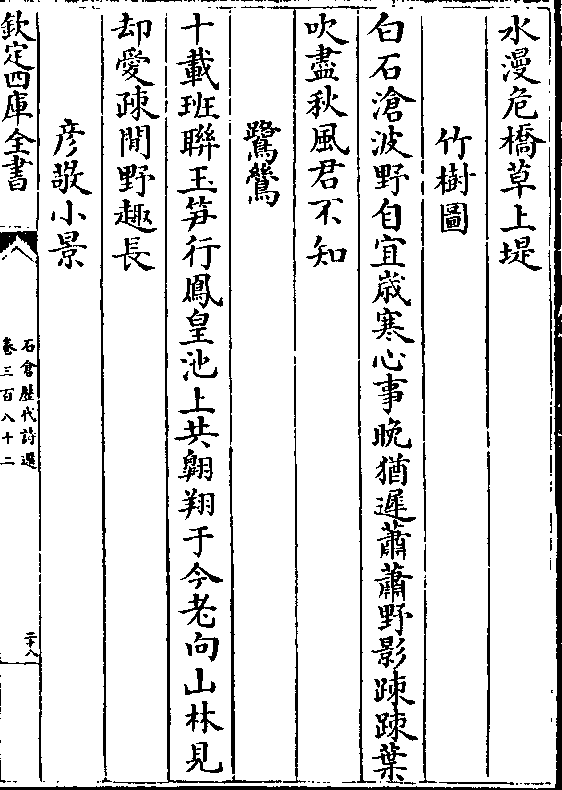 水漫危橋草上堤
竹樹圖
白石滄波野自宜歲寒心事晚猶遲蕭蕭野影踈踈葉
吹盡秋風君不知
鷺鷥
十載班聯玉笋行鳳皇池上共翺翔于今老向山林見
却愛踈閒野趣長
彦敬小景
欽定四庫全書
石倉歷代詩選
卷三百八十二
二十八